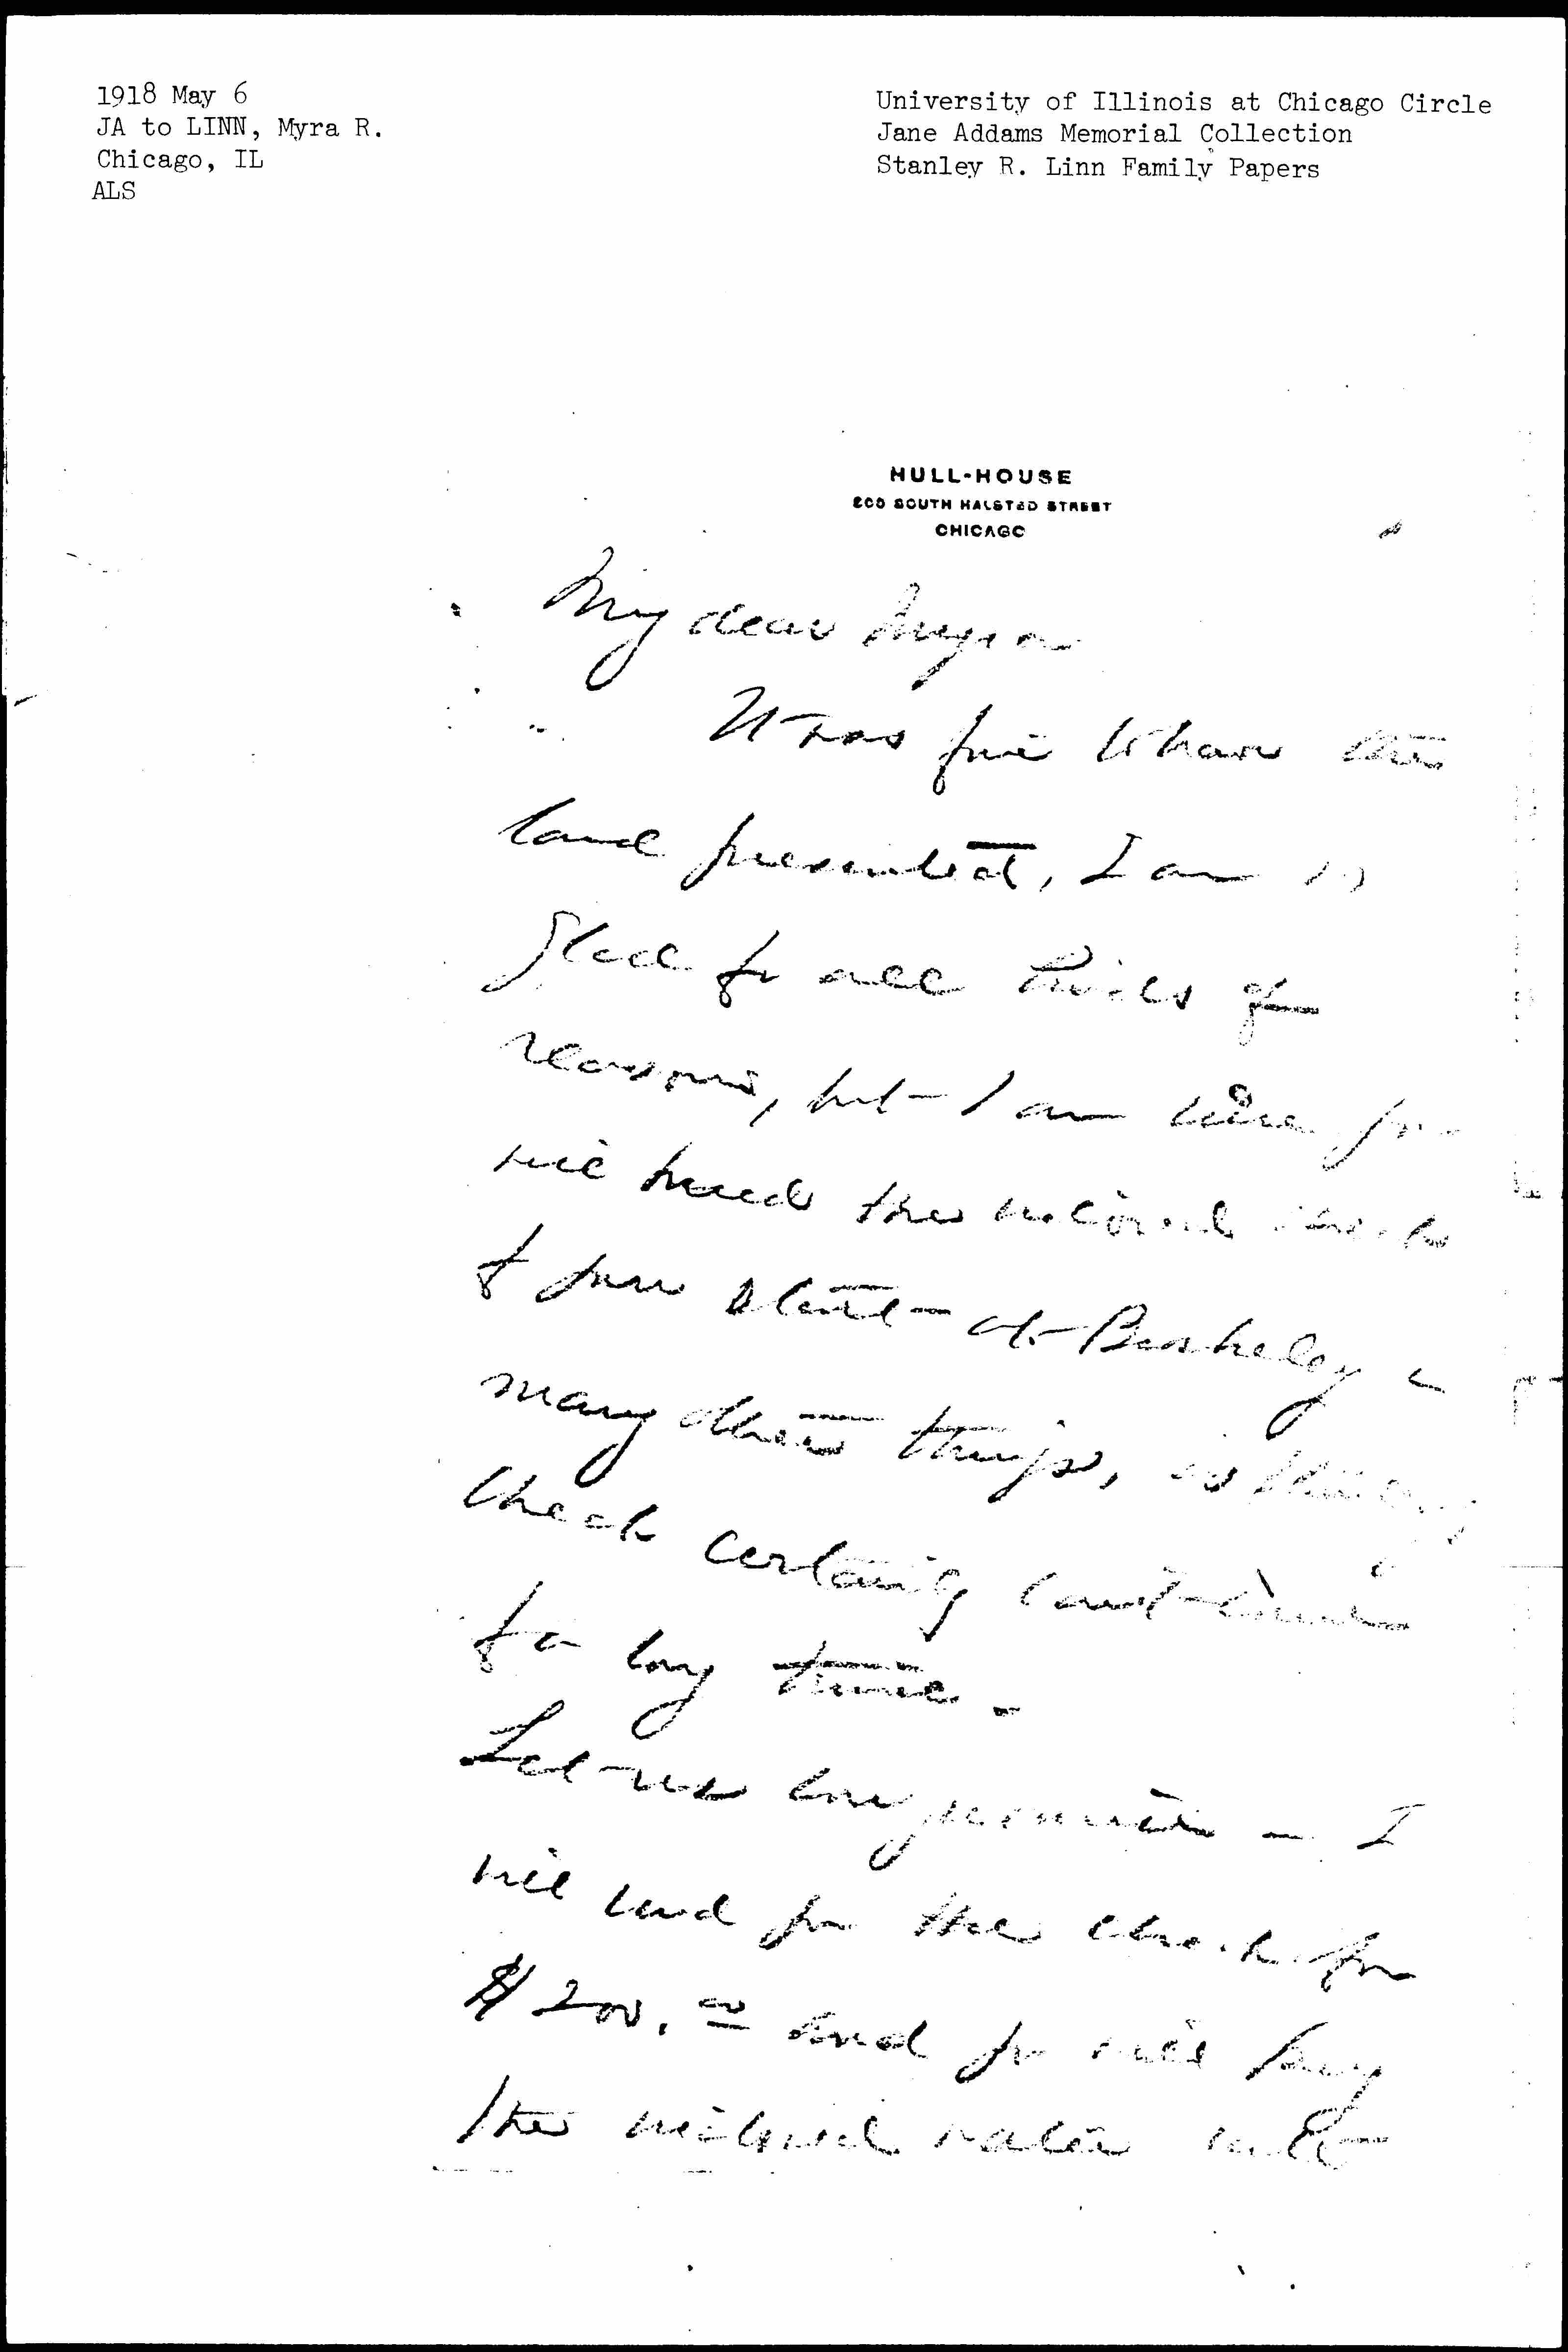 1918 May 6
JA to LINN, Myra R.
Chicago, IL
ALS
University of Illinois at Chicago Circle
Jane Addams Memorial Collection
Stanley R. Linn Family Papers
HULL-HOUSE
800 SOUTH HALSTED STREET
CHICAGO
My dear Myra
It was fine to have the
land presented, I am so
glad for all kinds of
reasons, but I am sure you
will need the
of your at Berkeley &
many other things,
check certainly can't
for a long time -
Let us compromise - I
will send you the check for
$200.00 and you will pay
the